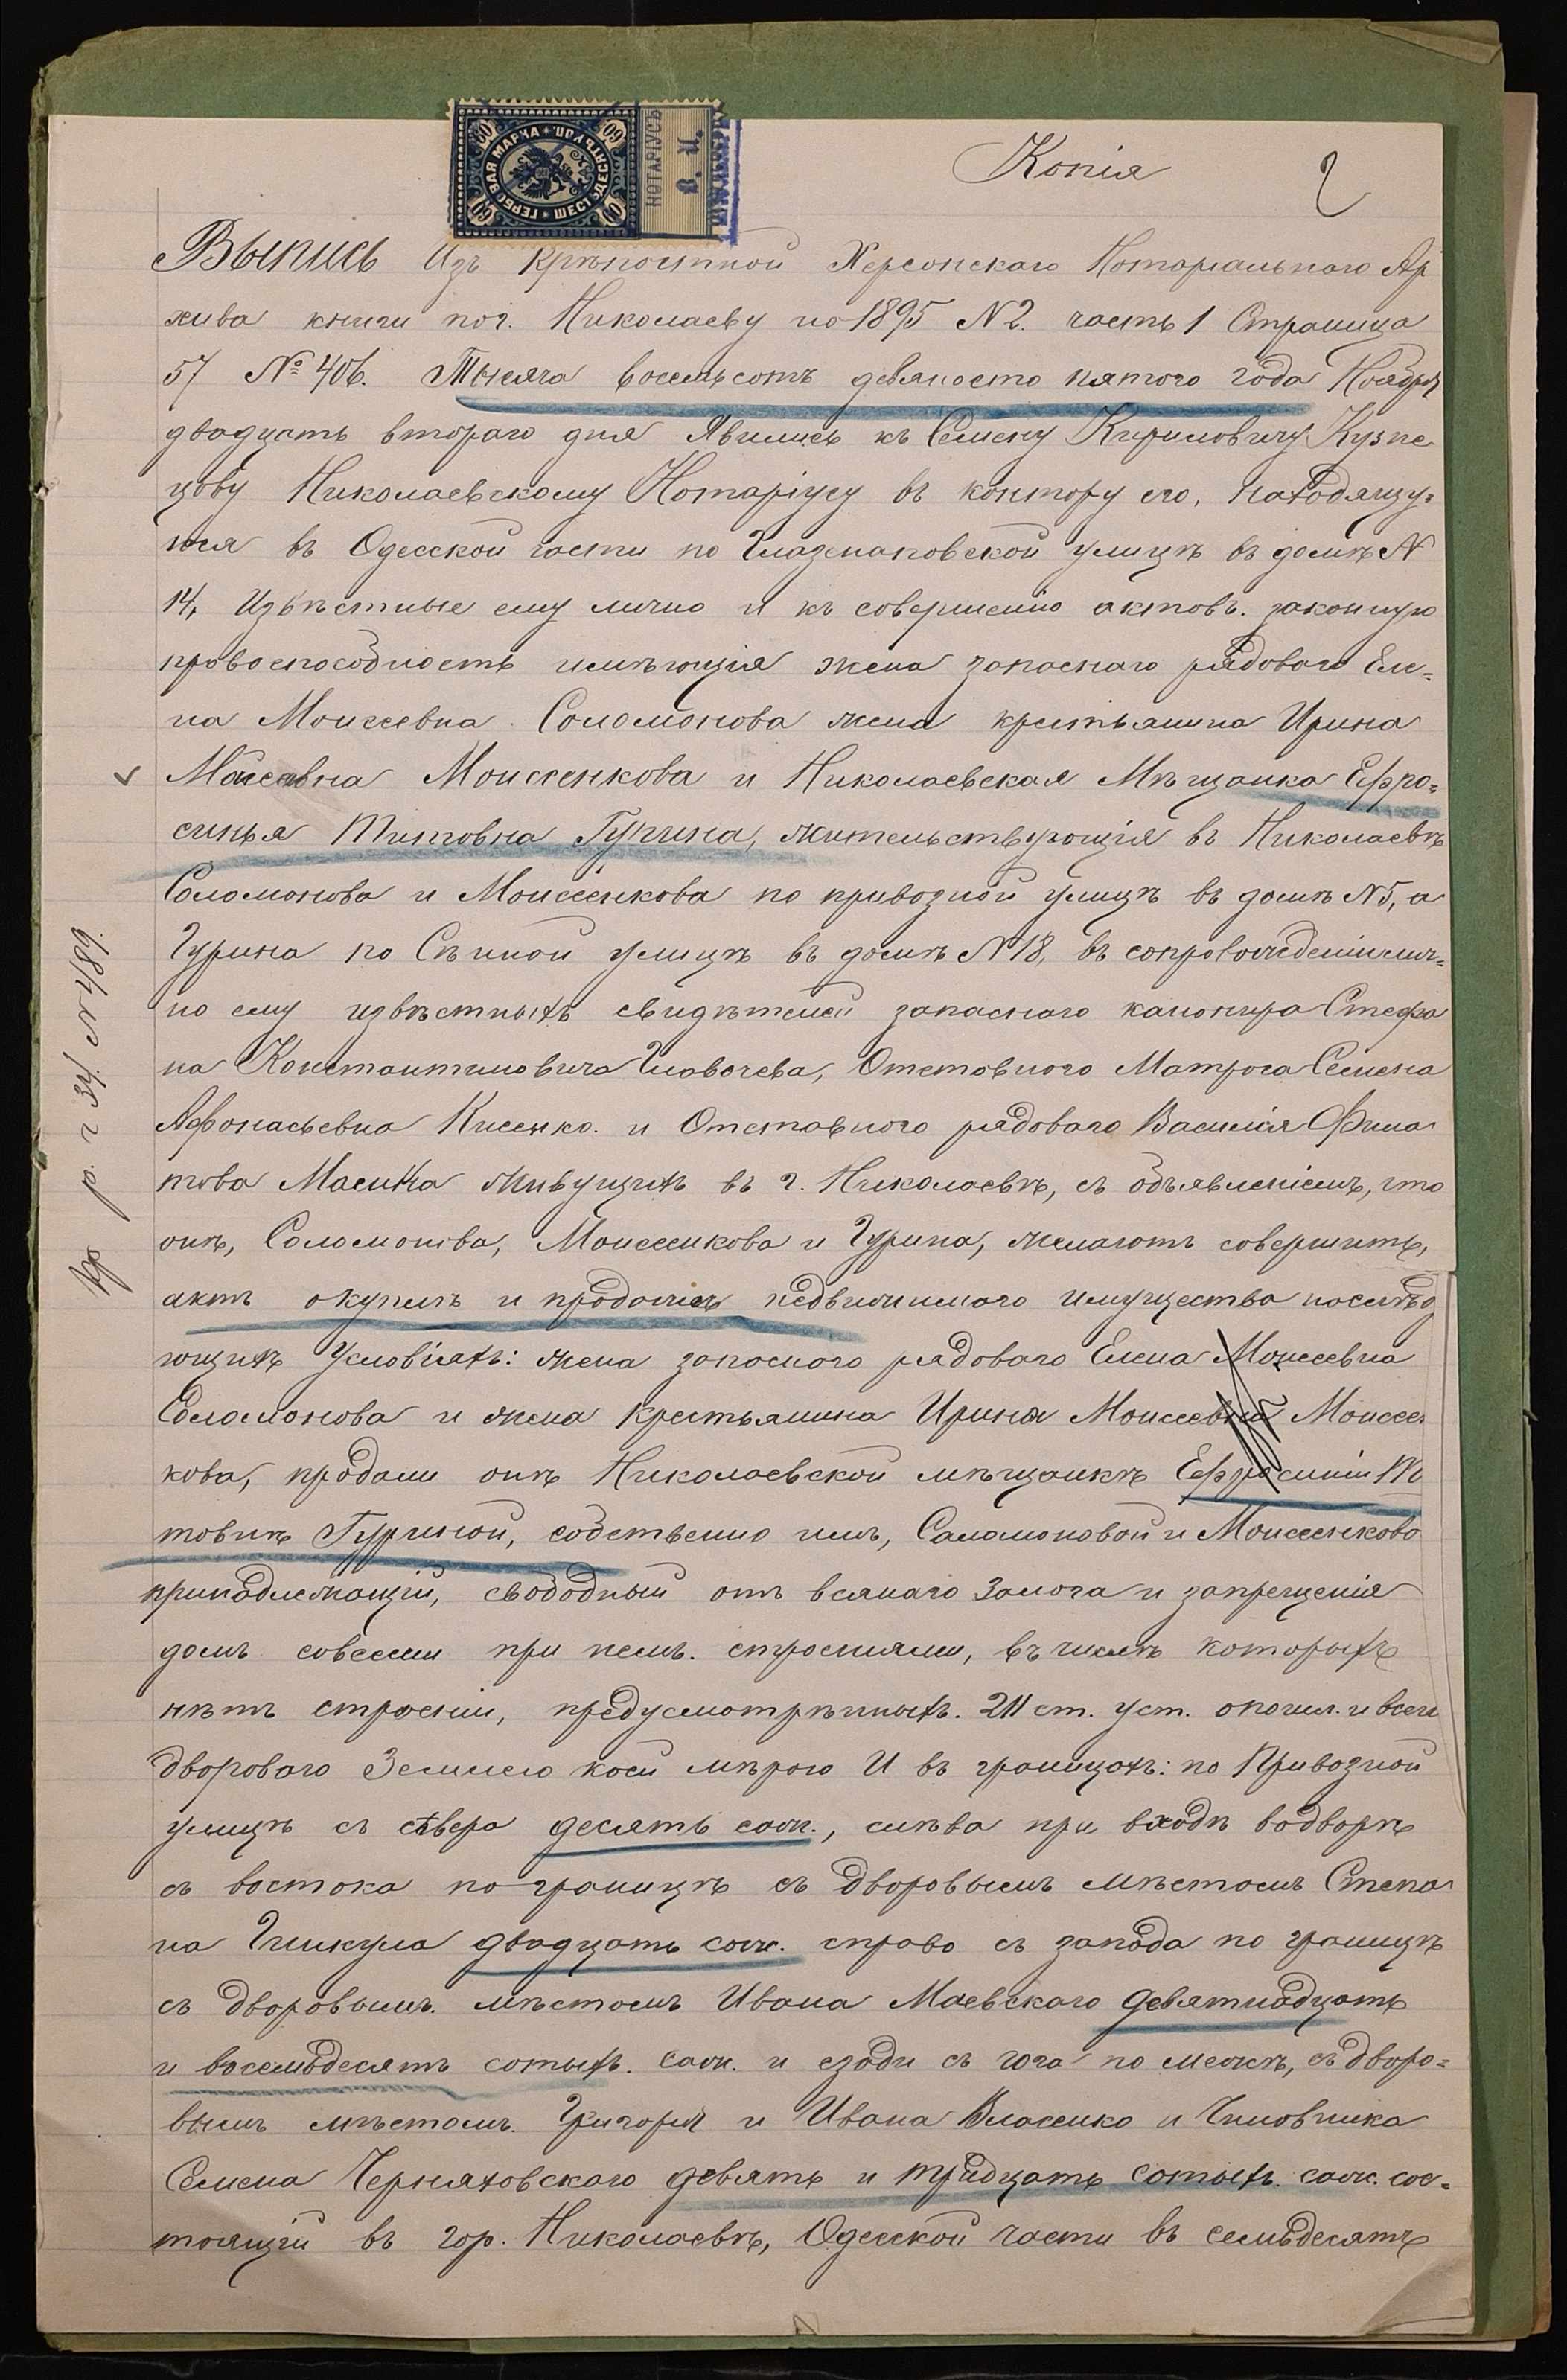 Копія
2
ГЕРБОВАЯ МАРКА ШЕСТЬДЕСЯТЪ КОП.
60
НОТАРІУСЪ
В. И.
Выпись Изъ Крѣпостной Херсонскаго Нотаріальнаго Ар
хива книги по г. Николаеву но 1895 N 2. часть 1 Страница
57 № 406. Тысяча восемьсотъ девяносто пятого года Ноября
двадцать втораго дня Явились къ Семену Кириловичу Кузне
цову Николаевскому Нотаріусу въ контору его, находящу-
юся въ Одесской части по Глазенаповской улицѣ въ домѣ N
14, Извѣстные ему лично и къ совершенію актовъ. законную
провоспособность имѣющія жена запаснаго рядоваго Еле-
на Моисеевна Соломонова жена крестьянина Ирина
Моисеевна Моисеенкова и Николаевская Мѣщанка Ефро-
синья Титовна Гурина, жительствующія въ Николаевѣ
Соломонова и Моисеенкова по привозной улицѣ въ домѣ N 5, а
Гурина по Сѣнной улицѣ въ домѣ N 18, въ сопровожденіи лич-
но ему извѣстныхъ свидѣтелей запаснаго канонира Стефа
на Константиновича Главачева, Отставного Матроса Семена
Афонасьевна Кисенко. и Отставного рядоваго Василія Фила
това Масина живущихъ въ г. Николаевѣ, съ объявленіемъ, что
онѣ, Соломонова, Моисеенкова и Гурина, желаютъ совершить,
актъ о куплѣ и продажѣ недвижимаго имущества на слѣд
ющихъ Условіяхъ: жена запасного рядоваго Елена Моисеевна
Соломонова и жена крестьянина Ирина Моисеевна Моисеен
кова, продали онѣ Николаевской мѣщанкѣ Ефросиніи Ти
товнѣ Гуриной, собственно имъ, Саломоновой и Моисеенково
принадлежащій, свободный отъ всякаго Залога и запрещенія
домъ совсеми при немъ. строеніями, въ числѣ которыхъ
нѣтъ строеній, предусмотрѣнныхъ. 211 ст. уст. о пошл. и всего
двороваго Землею коей мѣрою И въ границахъ: по Привозной
улицѣ съ сѣвера десять саж., слѣва при входѣ водворъ
съ востока по границѣ съ дворовымъ мѣстомъ Степа
на Гинкула двадцать саж. справо съ запада по границѣ
съ дворовымъ. мѣстомъ Ивана Маевскаго девятнадцать
и восемьдесятъ сотыхъ. саж. и сзади съ юга по межѣ, съ дворо-
вымъ мѣстомъ. Григорія и Ивана Власенко и Чиновника
Семена Черняховскаго девять и тридцать сотыхъ. саж. сос-
тоящій въ гор. Николаевѣ, Одесской части въ семьдесятъ
кр р. г 34. N 489.